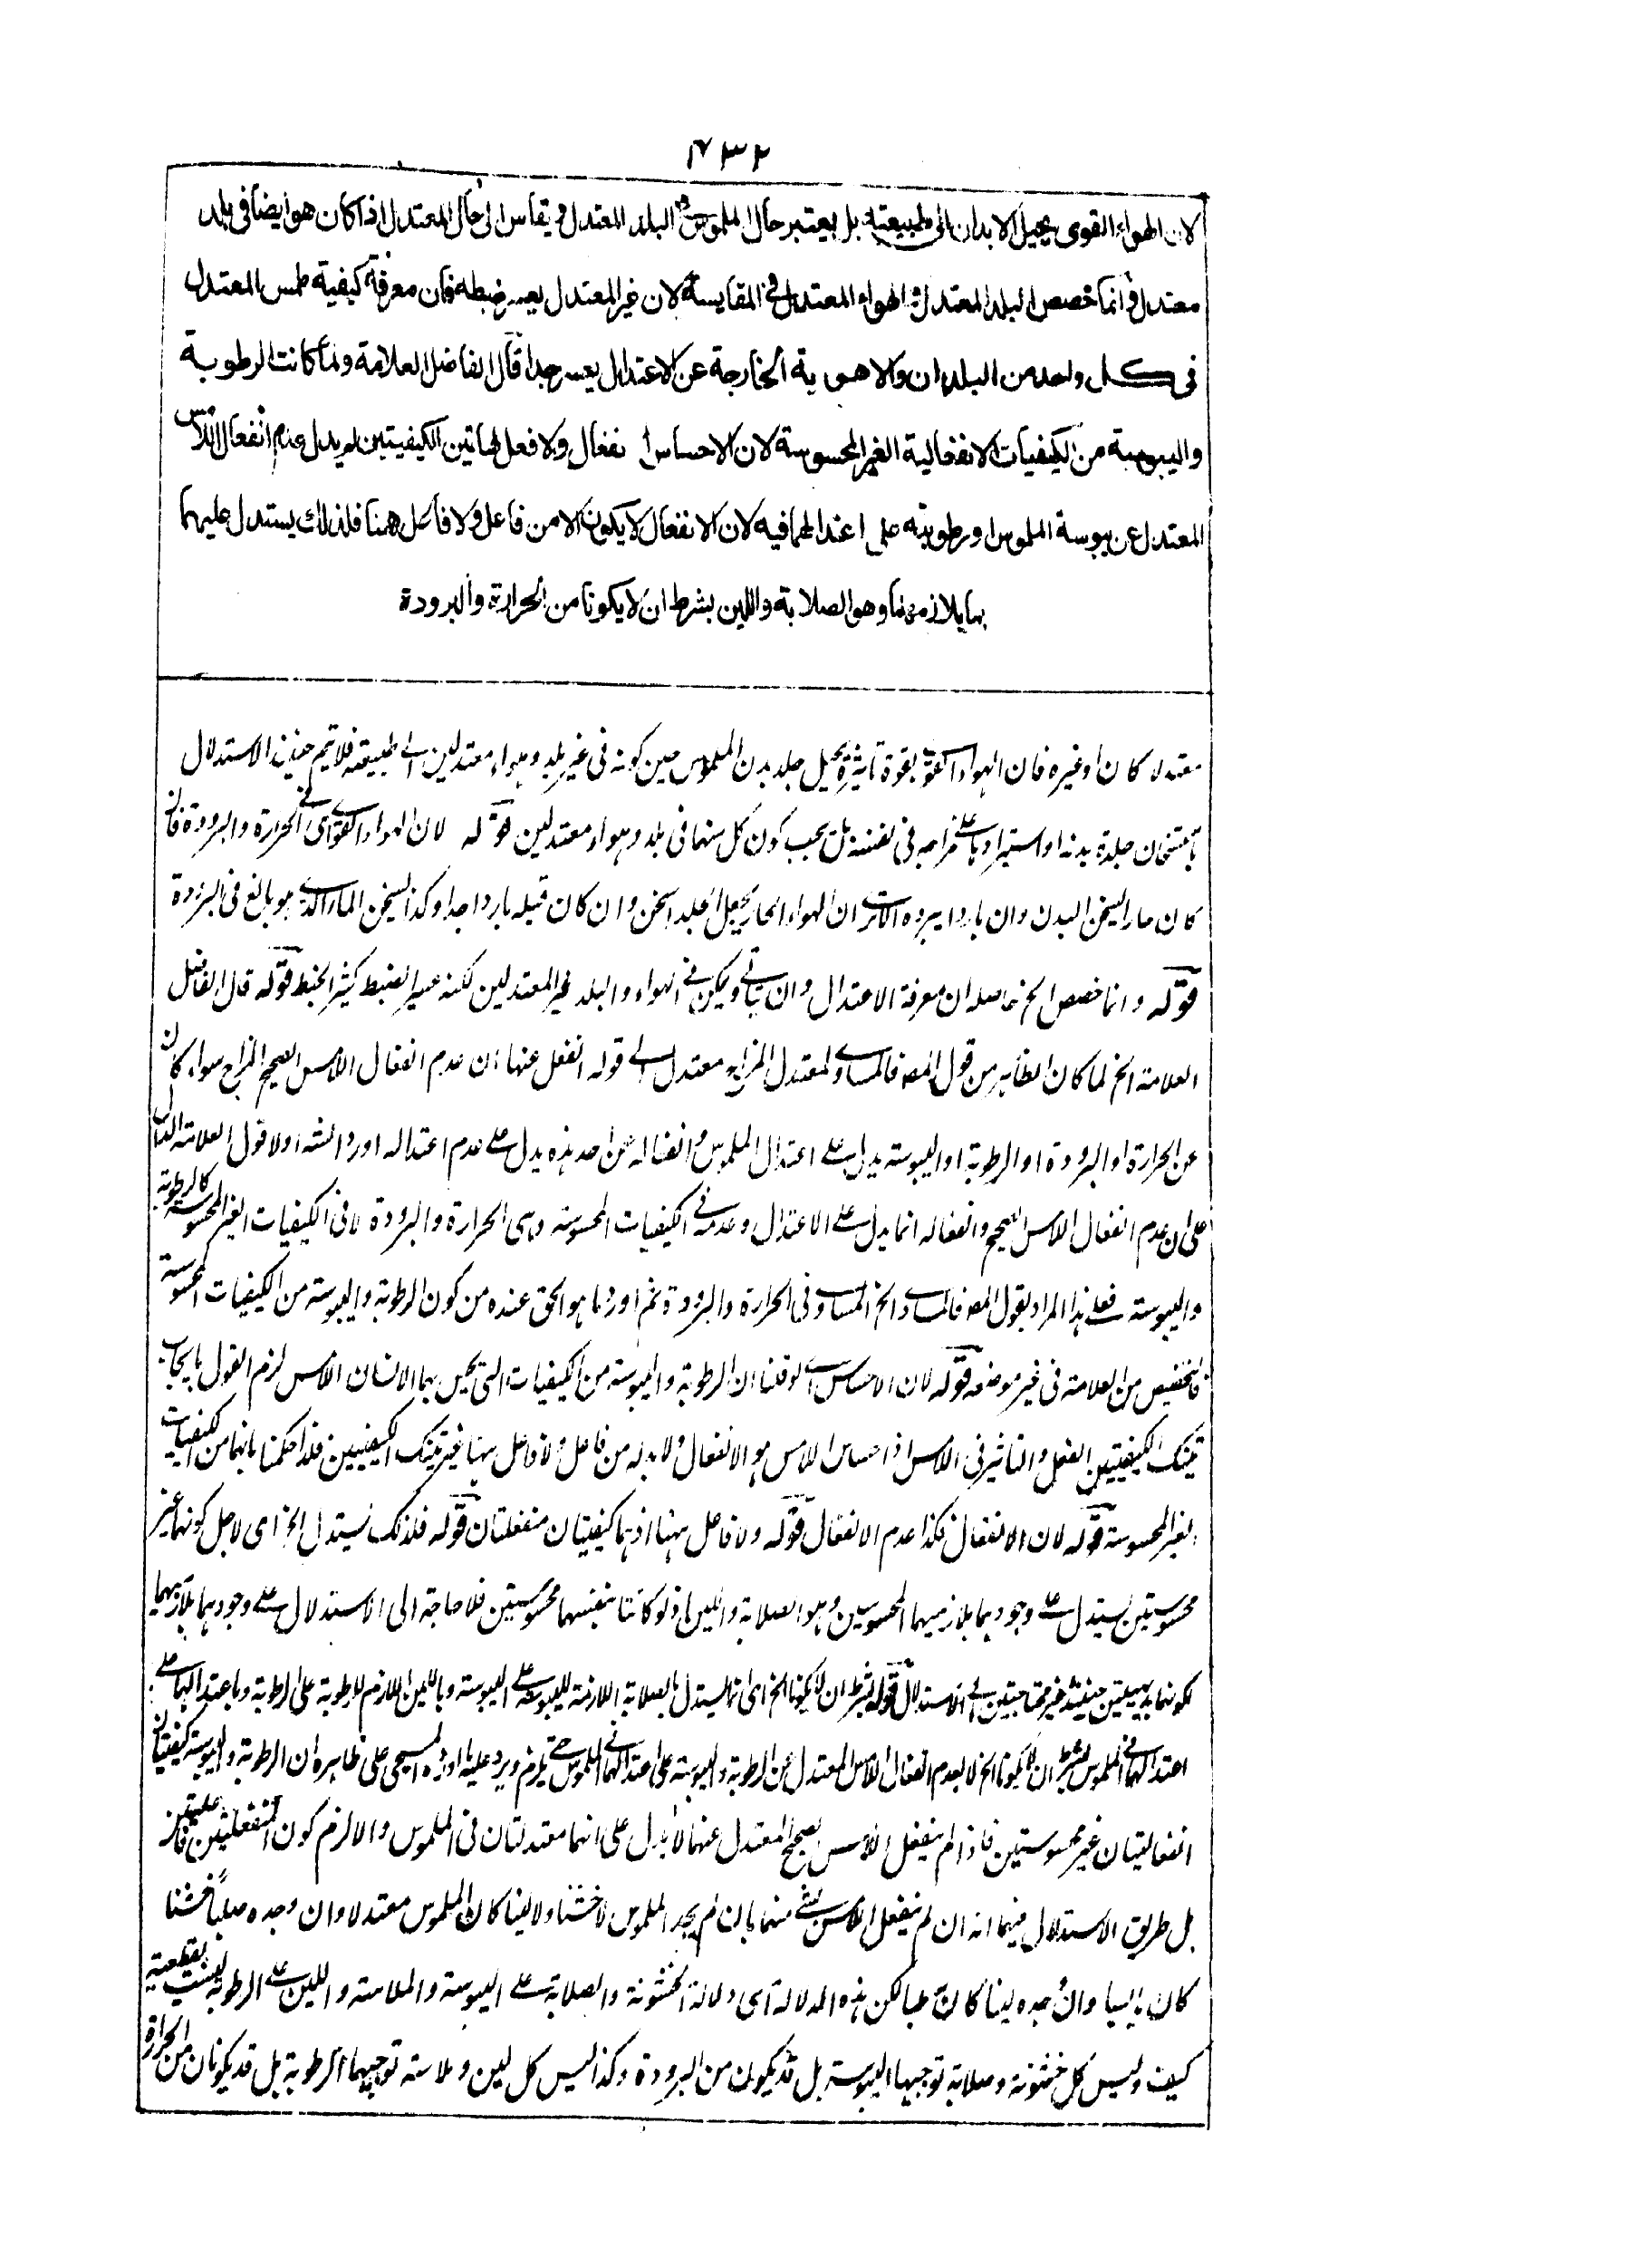 ٧٣٢
لان الهواء القوى يحيل الابدان الى طبيعته بل يعتبر حال الملموس فى البلد المعتدل و يقاس الى حال المعتدل اذا كان هو ايضا فى بلد
معتدل و انما خصص البلد المعتدل و الهواء المعتدل فى المقايسة لان غير المعتدل يعسر ضبطه فان معرفة كيفية ملمس المعتدل
فى كل واحد من البلدان والاهوية الخارجة عن الاعتدال يعسر جدا قال الفاضل العلامة ولما كانت الرطوبة
واليبوسة من الكيفيات الانفعالية الغير المحسوسة لان الاحساس انفعال ولا فعل لهاتين الكيفيتين لم يدل عدم انفعال اللامس
المعتدل عن يبوسة الملموس او رطوبته على اعتدالهما فيه لان الانفعال لا يكون الا من فاعل ولا فاعل ههنا فلذلك يستدل عليهما
بما يلازمهما وهو الصلابة واللين بشرط ان لا يكونا من الحرارة والبرودة
معتدلا كان او غيره فان الهواء القوى بقوة تاثيره يحيل جلد بدن الملموس حين كونه فى غير بلد وهواء معتدلين الى طبيعته فلا يتم حينئذ الاستدلال
جلدة بدنه او على مزاجه فى نفسه بل يجب كون كل منهما فى بلد وهواء معتدلين قوله لان الهواء القوى اى فى الحرارة والبرودة فان
كان حارا يسخن البدن وان باردا يبرده الا ترى ان الهواء الحار يجعل الجلد اسخن وان كان قبله باردا جدا وكذا يسخن الماء الذى هو بالغ فى البرودة
قوله وانما خصص الخ حاصله ان معرفة الاعتدال وان تاتى ويمكن فى الهواء والبلد غير المعتدلين لكنه عسير الضبط كثير الخبط قوله قال الفاضل
العلامة الخ لما كان الظاهر من قول المصـ فالمساوى لمعتدل المزاج معتدل الى قوله انفعل عنها ان عدم انفعال اللامس الصحيح المزاج سواء كان
عن الحرارة او البرودة او الرطوبة او اليبوسة يدل على اعتدال الملموس وانفعاله عن احد هذه يدل على عدم اعتداله اورد الشـ اولا قول العلامة الدال
على ان عدم انفعال اللامس الصحيح وانفعاله انما يدل على الاعتدال وعدمه فى الكيفيات المحسوسة وهى الحرارة والبرودة لا فى الكيفيات الغير المحسوسة كالرطوبة
واليبوسة فعلى هذا المراد بقول المصـ فالمساوى الخ المساوى فى الحرارة والبرودة ثم اورد ما هو الحق عنده من كون الرطوبة واليبوسة من الكيفيات المحسوسة
فالتخصيص من العلامة فى غير موضعه قوله لان الاحساس الخ لو قلنا ان الرطوبة واليبوسة من الكيفيات التى يحس بها الانسان اللامس لزم القول بايجاب
تينك الكيفيتين الفعل والتاثير فى اللامس اذ احساس اللامس هو الانفعال ولا بد له من فاعل ولا فاعل ههنا غير تينك الكيفيتين فلذا حكمنا بانهما من الكيفيات
الغير المحسوسة قوله لان الانفعال فكذا عدم الانفعال قوله ولا فاعل ههنا اذ هما كيفيتان منفعلتان قوله فلذلك يستدل الخ اى لاجل كونهما غير
محسوستين يستدل على وجودهما بلازميهما المحسوسين وهو الصلابة واللين اذ لو كانتا بنفسهما محسوستين فلا حاجة الى الاستدلال على وجودهما بلازميهما
لكونهما بديهيتين حينئذ غير محتاجتين الى الاستدلال قوله بشرط ان لا يكونا الخ اى انما يستدل بالصلابة اللازمة لليبوسة على اليبوسة وباللين اللازم للرطوبة على الرطوبة وباعتدالهما على
اعتدالهما فى الملموس بشرط ان لا يكونا الخ لا بعدم انفعال اللامس المعتدل عن الرطوبة واليبوسة على اعتدالهما فى الملموس حتى يلزم ويرد عليه ما اورده المسيحى على ظاهره ان الرطوبة واليبوسة كيفيتان
انفعاليتان غير محسوستين فاذا لم ينفعل اللامس الصحيح المعتدل عنهما لا يدل على انهما معتدلتان فى الملموس والا لزم كون المنفعلتين فاعلتين
بل طريق الاستدلال فيهما انه ان لم ينفعل اللامس بشئ منهما بان لم يجد الملموس لا خشنا ولا لينا كان الملموس معتدلا وان وجده صلبا خشنا
كان يابسا وان وجده لينا كان رطبا لكن هذه الدلالة اى دلالة الخشونة والصلابة على اليبوسة والملاسة واللين على الرطوبة ليست بقطعية
كيف وليس كل خشونة وصلابة توجبها اليبوسة بل قد يكون من البرودة وكذا ليس كل لين وملاسة توجبهما الرطوبة بل قد يكونان من الحرارة